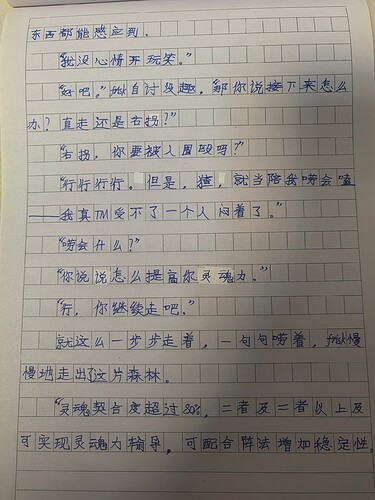 东西都能感应到。
“我没心情开玩笑。”
“好吧。”自讨没趣，“那你说接下来怎么
办？直走还是右拐？”
“右拐，你要被人围殴吗？”
“行行行行。但是，猹，就当陪我唠会嗑
——我真TM受不了一个人闷着了。”
“唠会什么？”
“你说说怎么提高你灵魂力。”
“行，你继续走吧。”
就这么一步步走着，一句句唠着，慢
慢地走出了这片森林。
“灵魂契合度超过80%，二者及二者以上及
可实现灵魂力输导，可配合阵法增加稳定性。